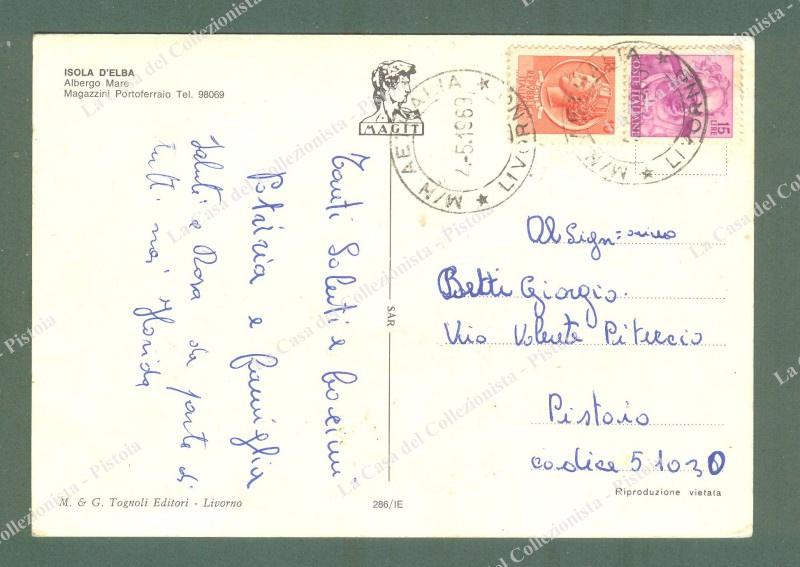 ISOLA D'ELBA
Albergo Mare
Magazzini Portoferraio Tel. 98069
MAGIT
M/N AETHALIA ★ LIVORNO ★
-5.1969
15
LIRE
Tanti Saluti e bacioni
Patrizia e famiglia
Saluti a Rosa da parte di
tutti noi Florida
SAR
Al Sign:
Betti Giorgio.
Via Valente Pituccio
Pistoia
codice 51030
Riproduzione vietata
M. & G. Tognoli Editori - Livorno
286/IE
La Casa del Collezionista - Pistoia